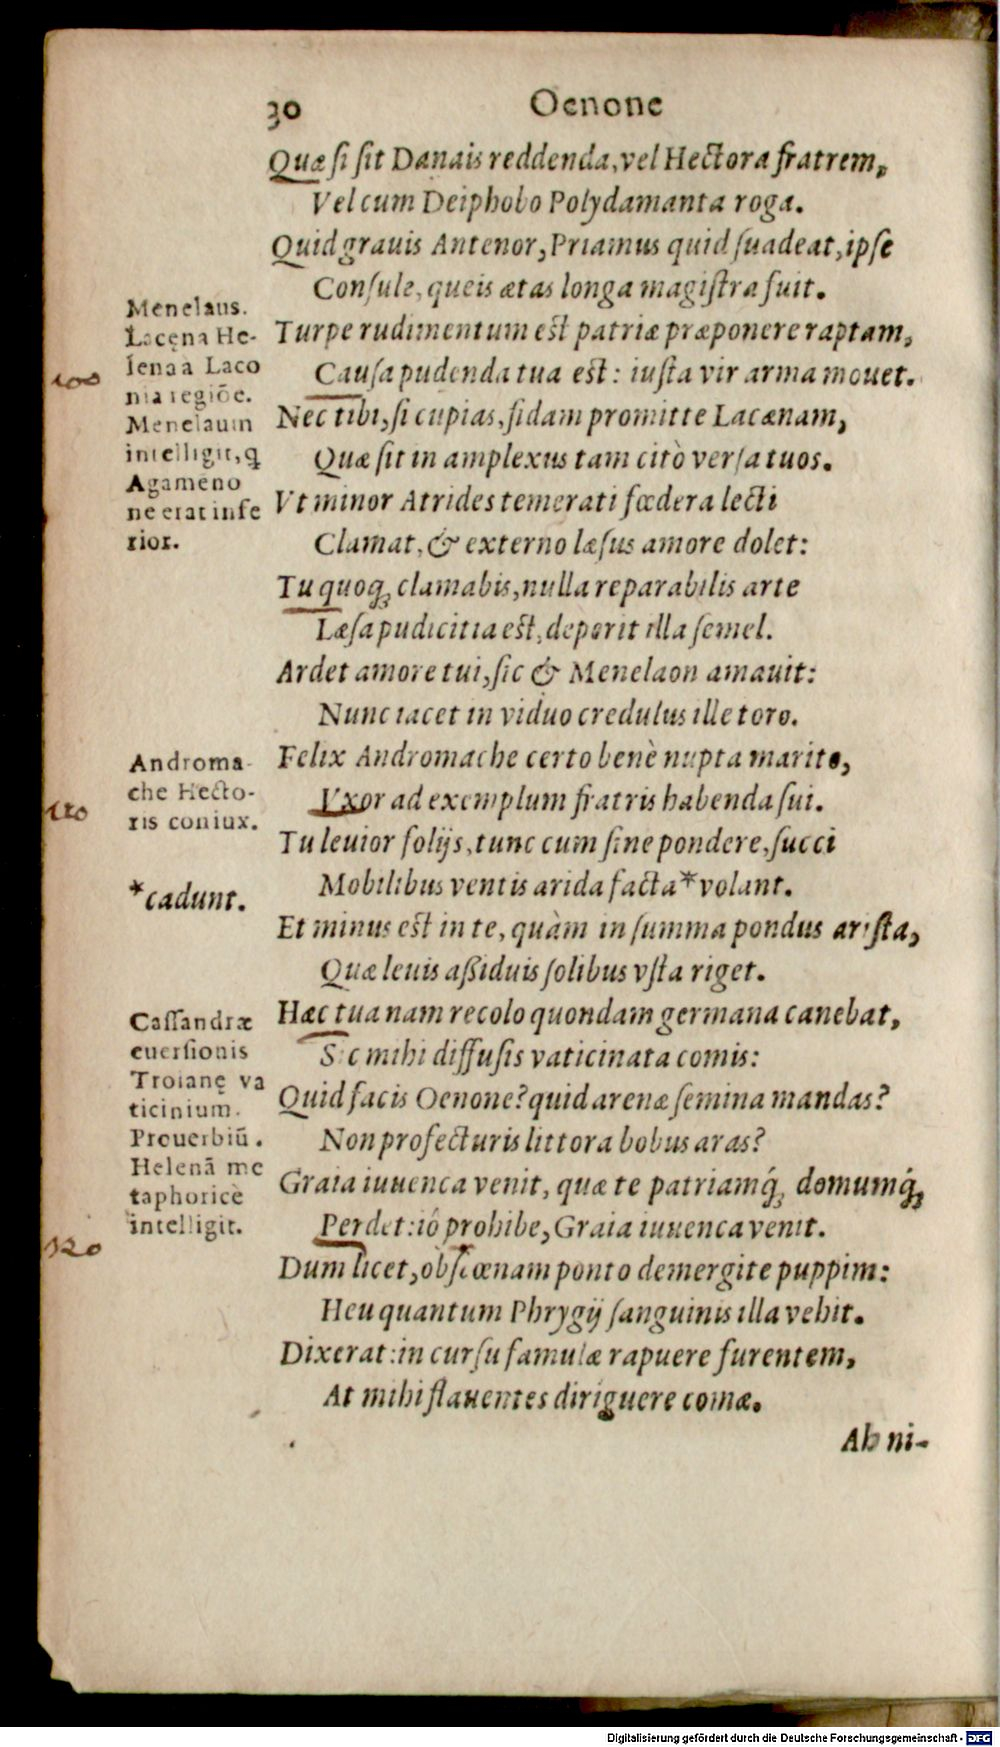 30 Oenone
Quæ si sit Danais reddenda, vel Hectora fratrem,
Vel cum Deiphobo Polydamanta roga.
Quid grauis Antenor, Priamus quid suadeat, ipse
Consule, queis ætas longa magistra fuit.
Turpe rudimentum est patriæ præponere raptam,
Causa pudenda tua est: iusta vir arma mouet.
Nec tibi, si cupias, fidam promitte Lacænam,
Quæ sit in amplexus tam citò versa tuos.
Vt minor Atrides temerati fœdera lecti
Clamat, & externo læsus amore dolet:
Tu quoq; clamabis, nulla reparabilis arte
Læsa pudicitia est, deperit illa semel.
Ardet amore tui, sic & Menelaon amauit:
Nunc iacet in viduo credulus ille toro.
Felix Andromache certo benè nupta marito,
Vxor ad exemplum fratris habenda fui.
Tu leuior folijs, tunc cum sine pondere, succi
Mobilibus ventis arida facta* volant.
Et minus est in te, quàm in summa pondus arista,
Quæ leuis assiduis solibus vsta riget.
Hæc tua nam recolo quondam germana canebat,
Sic mihi diffusis vaticinata comis:
Quid facis Oenone? quid arenæ semina mandas?
Non profecturis littora bobus aras?
Graia iuuenca venit, quæ te patriamq́; domumq́;
Perdet: iô prohibe, Graia iuuenca venit.
Dum licet, obscœnam ponto demergite puppim:
Heu quantum Phrygij sanguinis illa vehit.
Dixerat: in cursu famulæ rapuere furentem,
At mihi flauentes diriguere comæ.
Ab ni-
Menelaus.
Lacęna He-
lena à Laco
nia regiõe.
Menelaum
intelligit, q
Agameno
ne erat infe
rior.
100
Androma-
che Hecto-
ris coniux.
110
*cadunt.
Cassandræ
euersionis
Troianę va
ticinium.
Prouerbiũ.
Helenã me
taphoricè
intelligit.
120
Digitalisierung gefördert durch die Deutsche Forschungsgemeinschaft - DFG